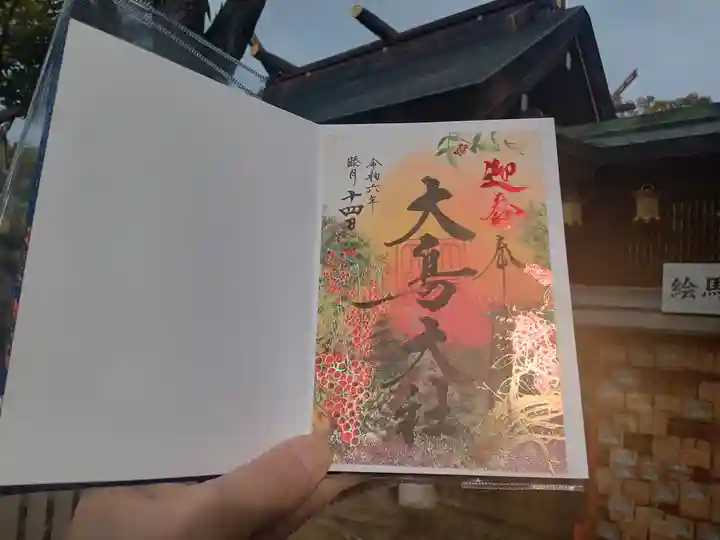 迎春
奉拝
大鳥大社
令和六年
睦月十四日
絵馬